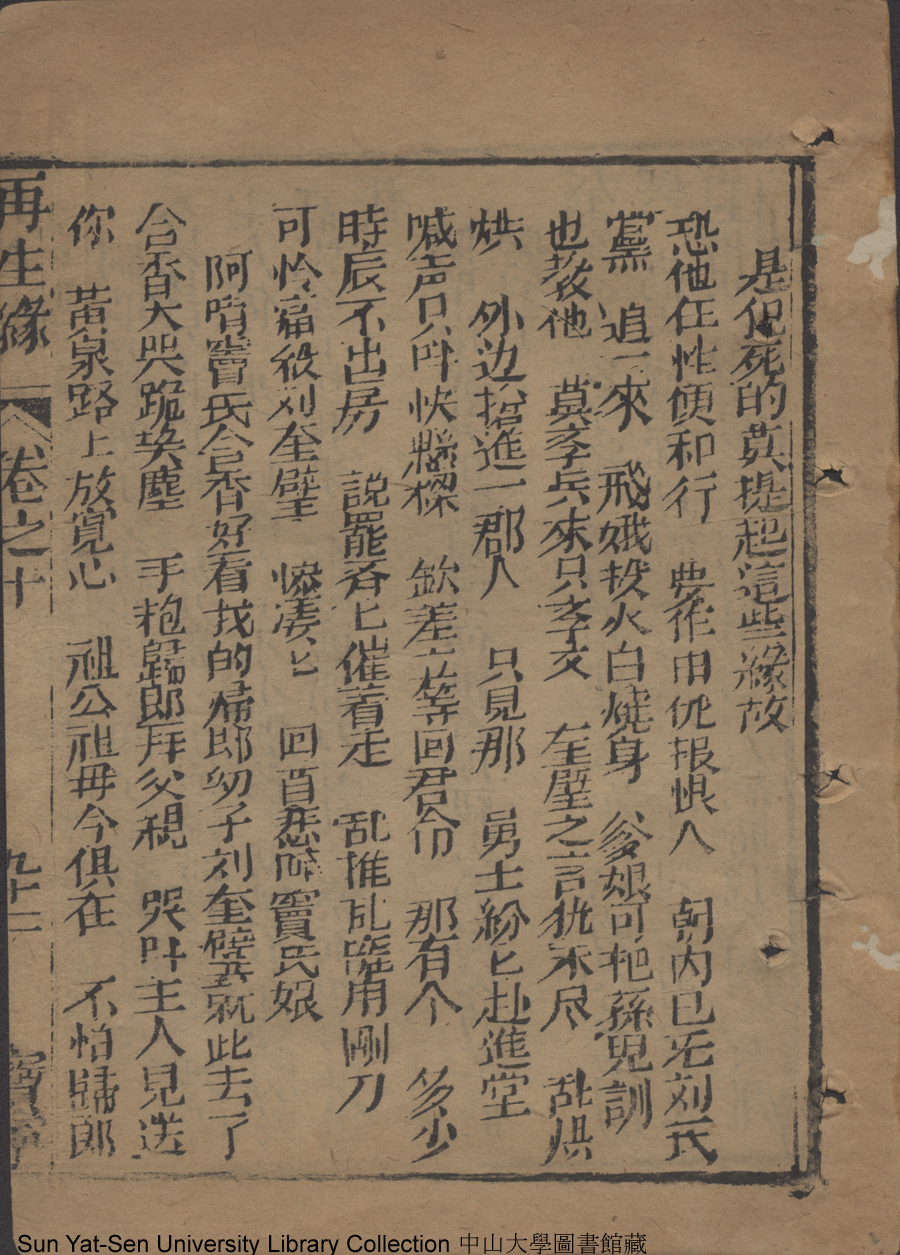 是他死的莫提起這些緣故
恐他任性便和行 要作由他报恨人 朝内已无刘氏
黨 追一來 飛娥投火白燒身 爹娘可把孫兒訓
也教他 莫孝兵來只孝文 奎壁之言犹未尽 乱烘
烘 外边抢進一郡人 只見那 勇士紛匕赴進堂
喊声只叫快懸樑 欽差立等回君命 那有个 多少
時辰不出房 說罷斉匕催着走 乱推乱 用剛刀
可怜富役刘奎璧 惨凄匕 回首悲啼竇氏娘
阿唷竇氏含香好看我的帰郎幼子刘奎璧就此去了
含香大哭跪埃塵 手抱歸郎拜父親 哭叫主人見送
你 黄泉路上放寛心 祖公祖母今俱在 不怕歸郎
再生緣 卷之十 九十二 寶
Sun Yat-Sen University Library Collection 中山大學圖書館藏